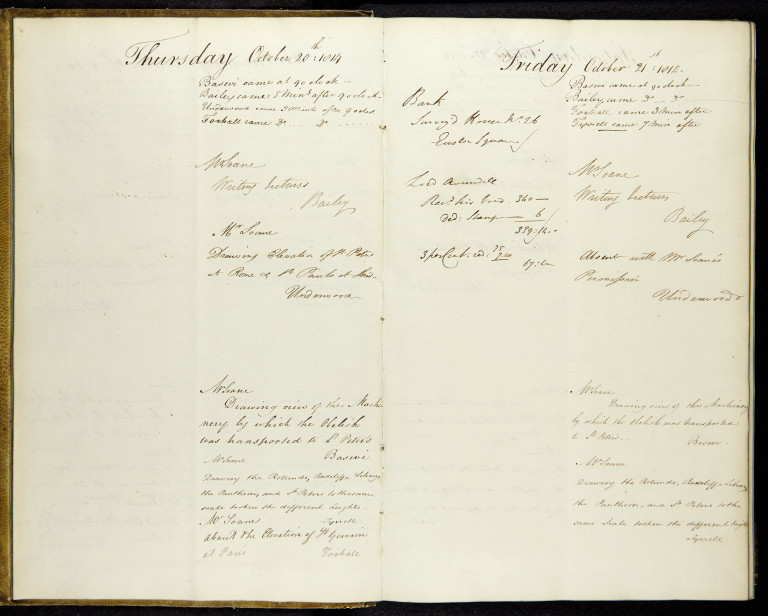 Thursday October 20th: 1814
Basevi came at 9 oclock —
Bailey came 5 Mins after 9 oclock.
Underwood came 3 Minute after 9 oclock
Foxhall came Do — Do
Mr Soane
Writing Lectures
Bailey
Mr Soane
Drawing Elevation of St Peters
at Rome & St Pauls at Lond-
Underwood
Mr Soane
Drawing view of the Mach-
nery by which the Obelisk
was transported to St Peter's
Basevi
Mr Soane
Drawing the Rotunda, Radcliffe Library
the Pantheon, and St Peters to the same
scale to shew the different heights.
Mr Soane Tyrrell
about the Elevation of St Gervaise
at Paris Foxhall
Friday October 21st: 1814.
Basevi came at 9 oclock —
Bailey came Do — Do
Foxhall came 3 Min after
Tyrrell came 7 Min after
Bank
Survey'd House No. 26
Euston Square
Lord Arundell
Recd his 360 —
ded: Stamp — 6
359:14..
3 per Cent. red:
Mr Soane
Writing Lectures
Bailey
Absent with Mr Soane's
Permission
Underwood
Mr Soane
Drawing view of the Machinery
by which the Obelisk was transported
to St Peters. —
Basevi.
Mr Soane
Drawing the Rotunda, Radcliffe Library
the Pantheon, and St Peters to the
same Scale to shew the different heights
Tyrrell